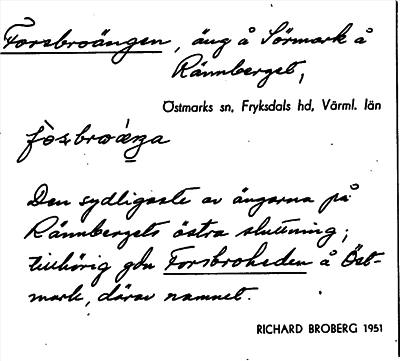 Forsbroängen, äng å Sörmark å
Rännberget,
Östmarks sn, Fryksdals hd, Värml. län
Den sydligaste av ängarna på
Rännbergets östra sluttning;
tillhörig gdn Forsbroheden å Öst-
mark, därav namnet.
RICHARD BROBERG 1951